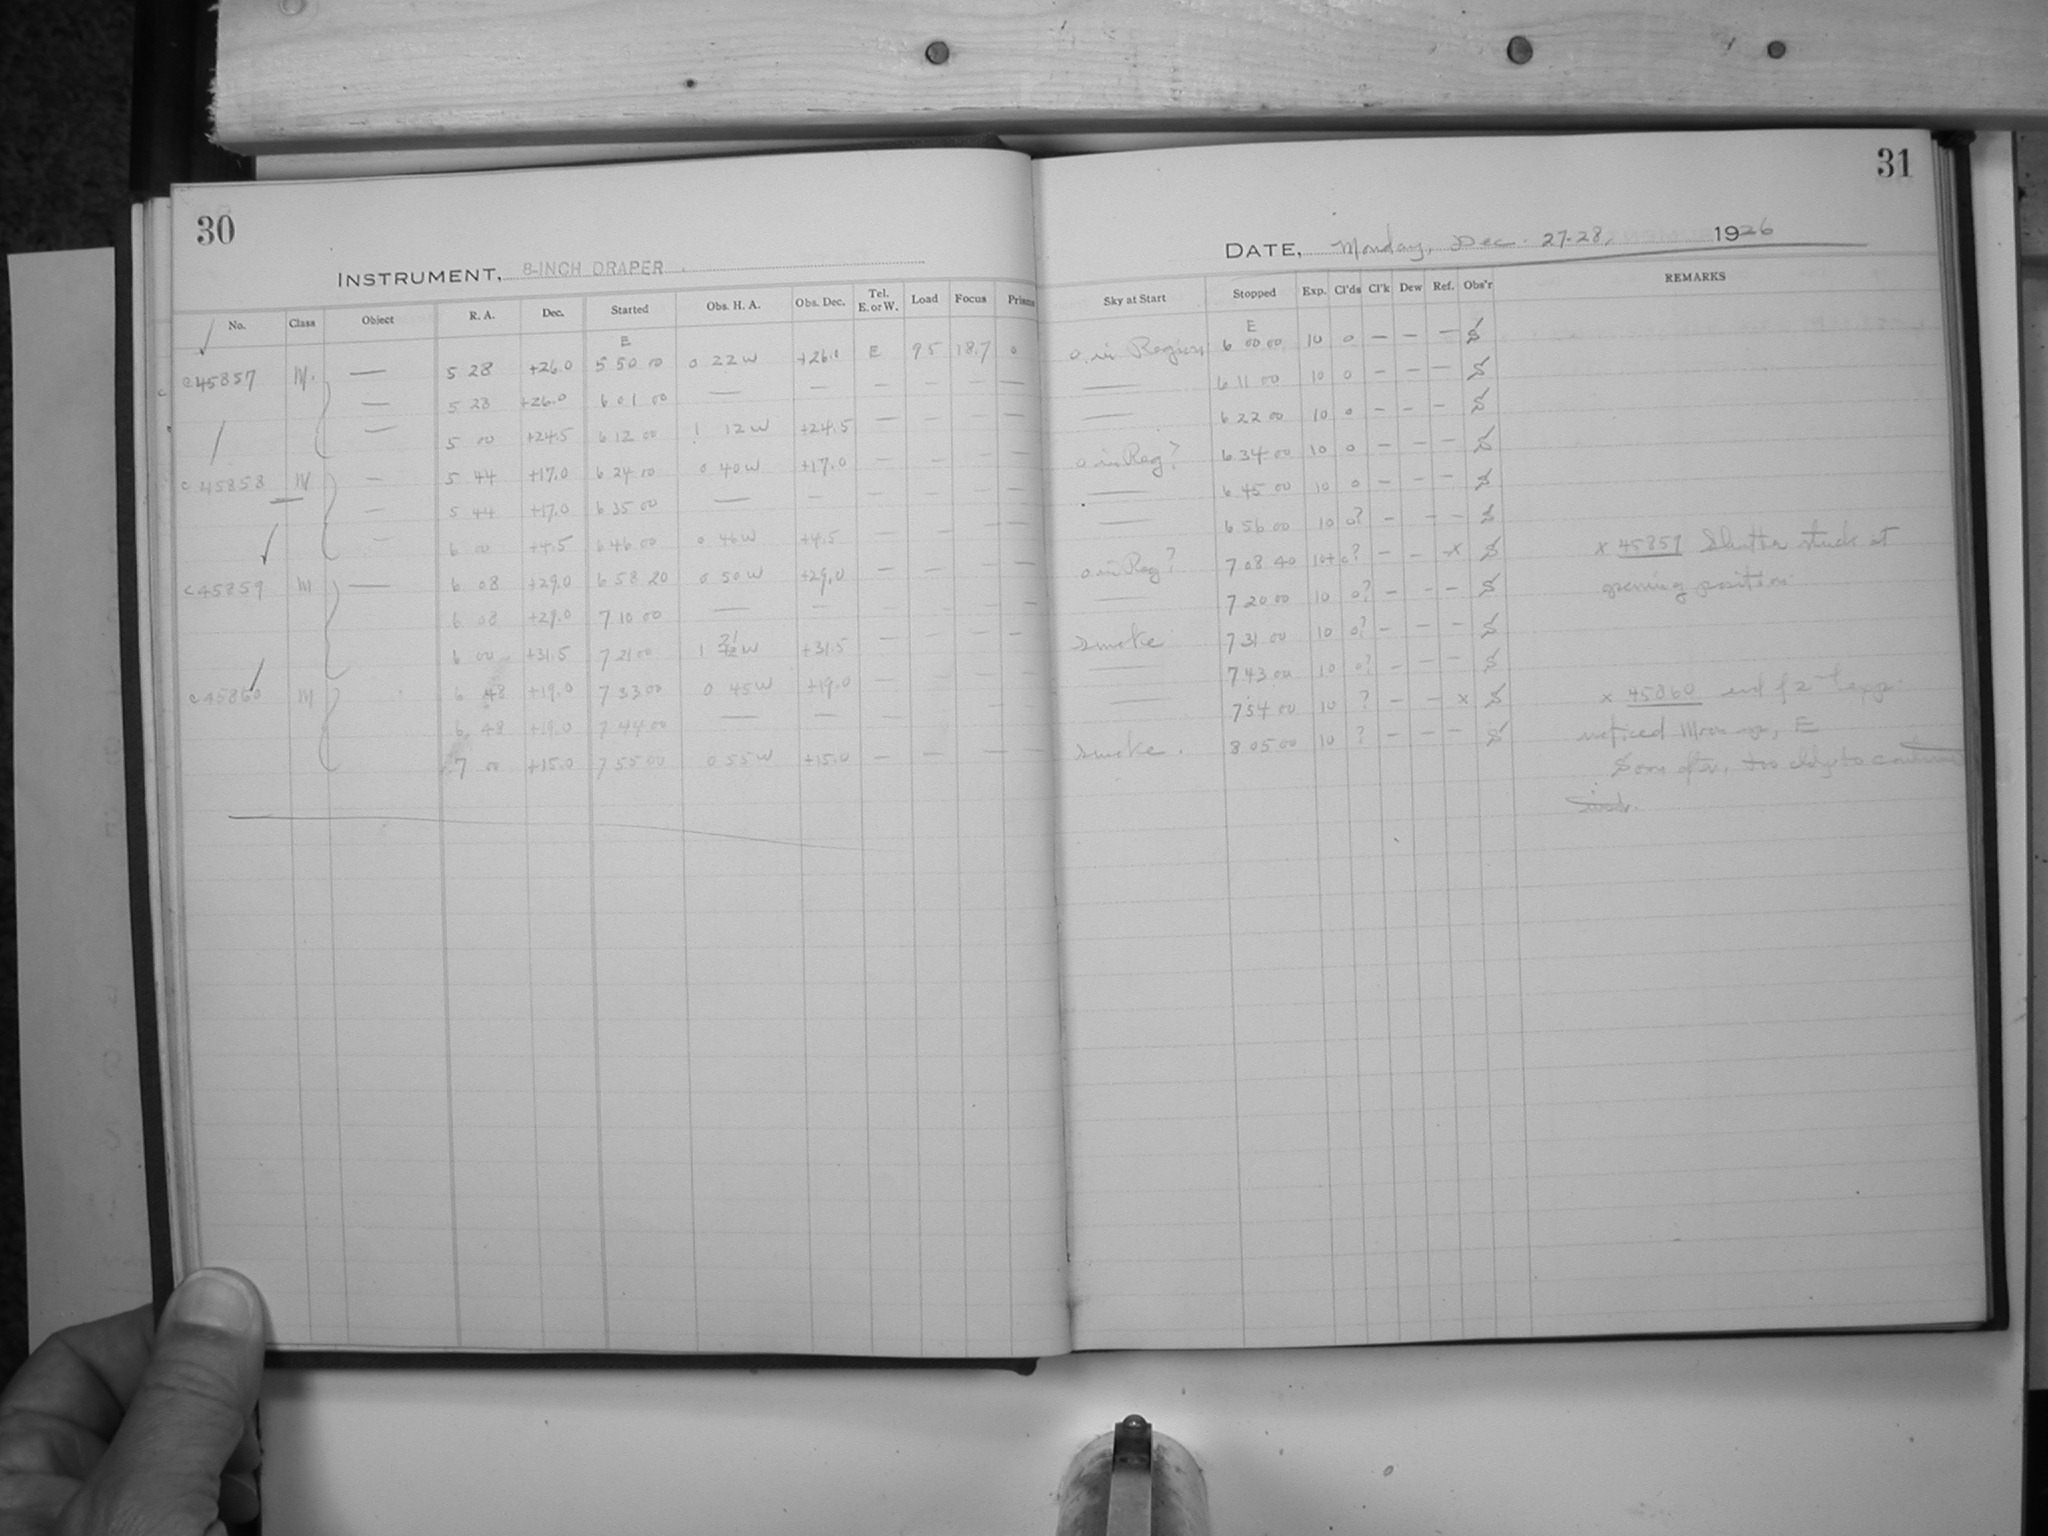 30
INSTRUMENT, 8-INCH DRAPER
No. Class Object R. A. Dec. Started Obs. H. A. Obs. Dec. Tel. E. or W. Load Focus Prisms
E
c45857 M. — 5 28 +26.0 5 50 00 0 22 W +26.0 E 95 18.7 0
— 5 28 +26.0 6 01 00 — — — — — —
— 5 00 +24.5 6 12 00 1 12 W +24.5 — — — —
c45858 M — 5 44 +17.0 6 24 00 0 40 W +17.0 — — — —
— 5 44 +17.0 6 35 00 — — — — — —
— 6 00 +4.5 6 46 00 0 46 W +4.5 — — — —
c45859 M — 6 08 +29.0 6 58 20 0 50 W +29.0 — — — —
6 08 +29.0 7 10 00 — — — — — —
6 00 +31.5 7 21 00 1 21 W +31.5 — — — —
c45860 M 6 48 +19.0 7 33 00 0 45 W +19.0 — — — —
6 48 +19.0 7 44 00 — — — — — —
7 00 +15.0 7 55 00 0 55 W +15.0 — — — —
31
DATE, Monday, Dec. 27-28, 1926
Sky at Start Stopped Exp. Cl'ds Cl'k Dew Ref. Obs'r REMARKS
E
0 in Region 6 00 00 10 0 — — — S
— 6 11 00 10 0 — — — S
— 6 22 00 10 0 — — — S
0 in Reg? 6 34 00 10 0 — — — S
— 6 45 00 10 0 — — — S
— 6 56 00 10 0? — — — S
0 in Reg? 7 08 40 10+ 0? — — x S x 45859 Shutter stuck at
— 7 20 00 10 0? — — — S opening position.
smoke 7 31 00 10 0? — — — S
— 7 43 00 10 0? — — — S
— 7 54 00 10 ? — — x S x 45860 end of 2nd exp.
smoke. 8 05 00 10 ? — — — S noticed Moon up, E
Soon after, too cldy to continue